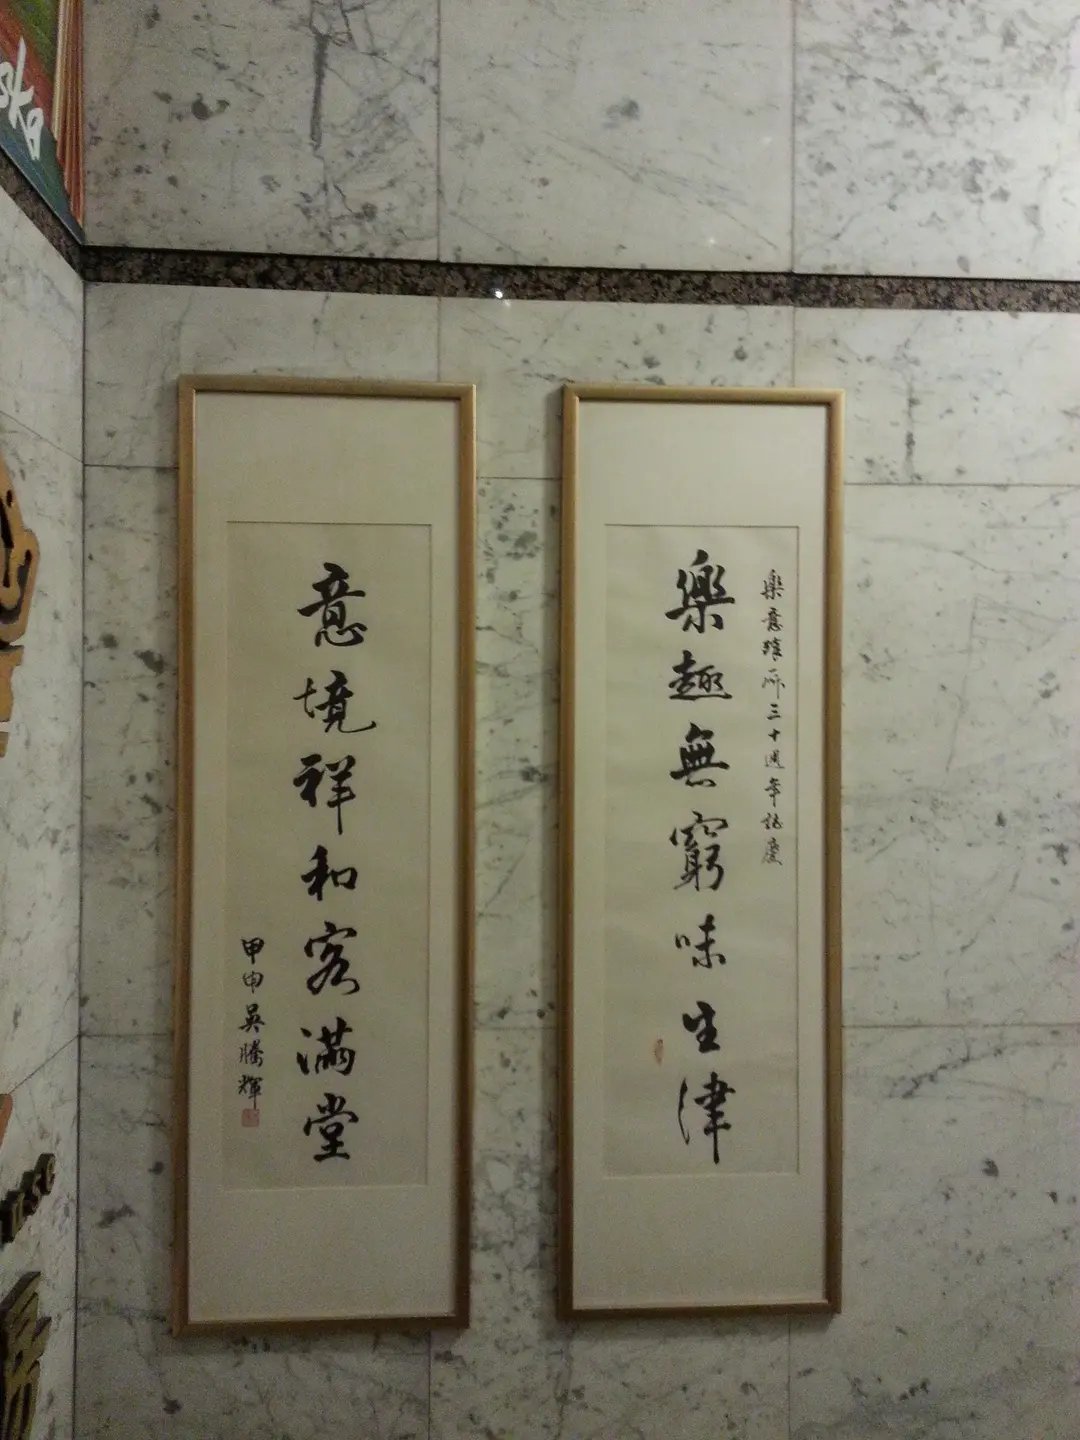 樂意𨍭所三十週年誌慶
樂趣無窮味生津
意境祥和客滿堂
甲申吳騰輝
ska